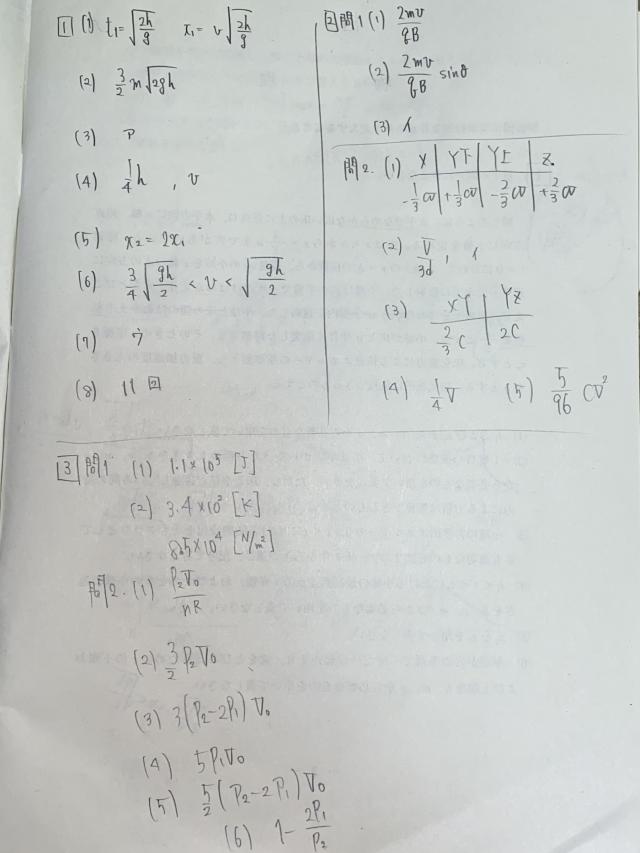 1 (1) t₁=√(2h/g) x₁= v√(2h/g)
(2) 3/2 m√(2gh)
(3) P
(4) 1/4 h , v
(5) x₂ = 2x₁
(6) 3/4 √(gh/2) < v < √(gh/2)
(7) ウ
(8) 11 回
2 問1 (1) 2mv/qB
(2) 2mv/qB sinθ
(3) イ
問2. (1) X | Y下 | Y上 | Z
-1/3 CV | +1/3 CV | -2/3 CV | +2/3 CV
(2) V/3d , イ
(3) XY | YZ
2/3 C | 2C
(4) 1/4 V (5) 5/96 CV²
3 問1 (1) 1.1×10⁵ [J]
(2) 3.4×10² [K]
8.25×10⁴ [N/m²]
問2. (1) P₂V₀/nR
(2) 3/2 P₂V₀
(3) 3(P₂-2P₁)V₀
(4) 5P₁V₀
(5) 5/2 (P₂-2P₁)V₀
(6) 1- 2P₁/P₂